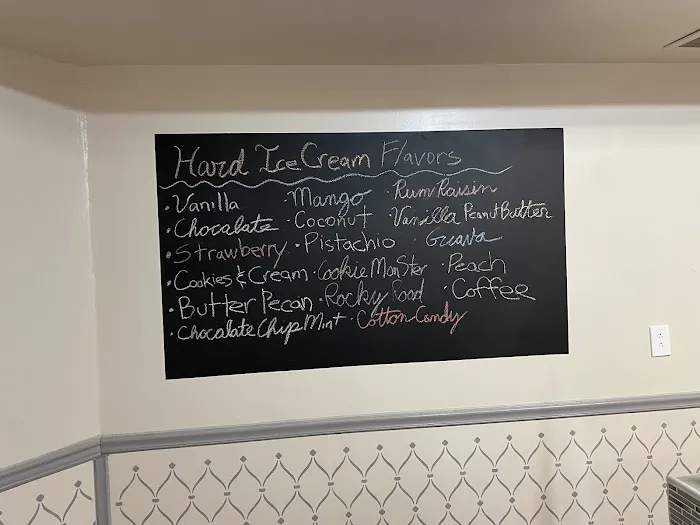 Hard Ice Cream Flavors
• Vanilla • Mango • Rum Raisin
• Chocalate • Coconut • Vanilla Peanut Butter
• Strawberry • Pistachio • Guava
• Cookies & Cream • Cookie Monster • Peach
• Butter Pecan • Rocky Road • Coffee
• Chocalate Chip Mint • Cotton Candy